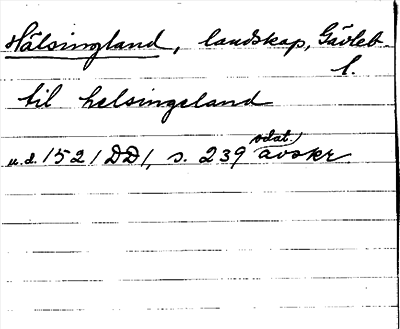 Hälsingland, landskap, Gävleb.
l.
til helsingeland
u.d. 1521 DD1, s. 239 odat. avskr.